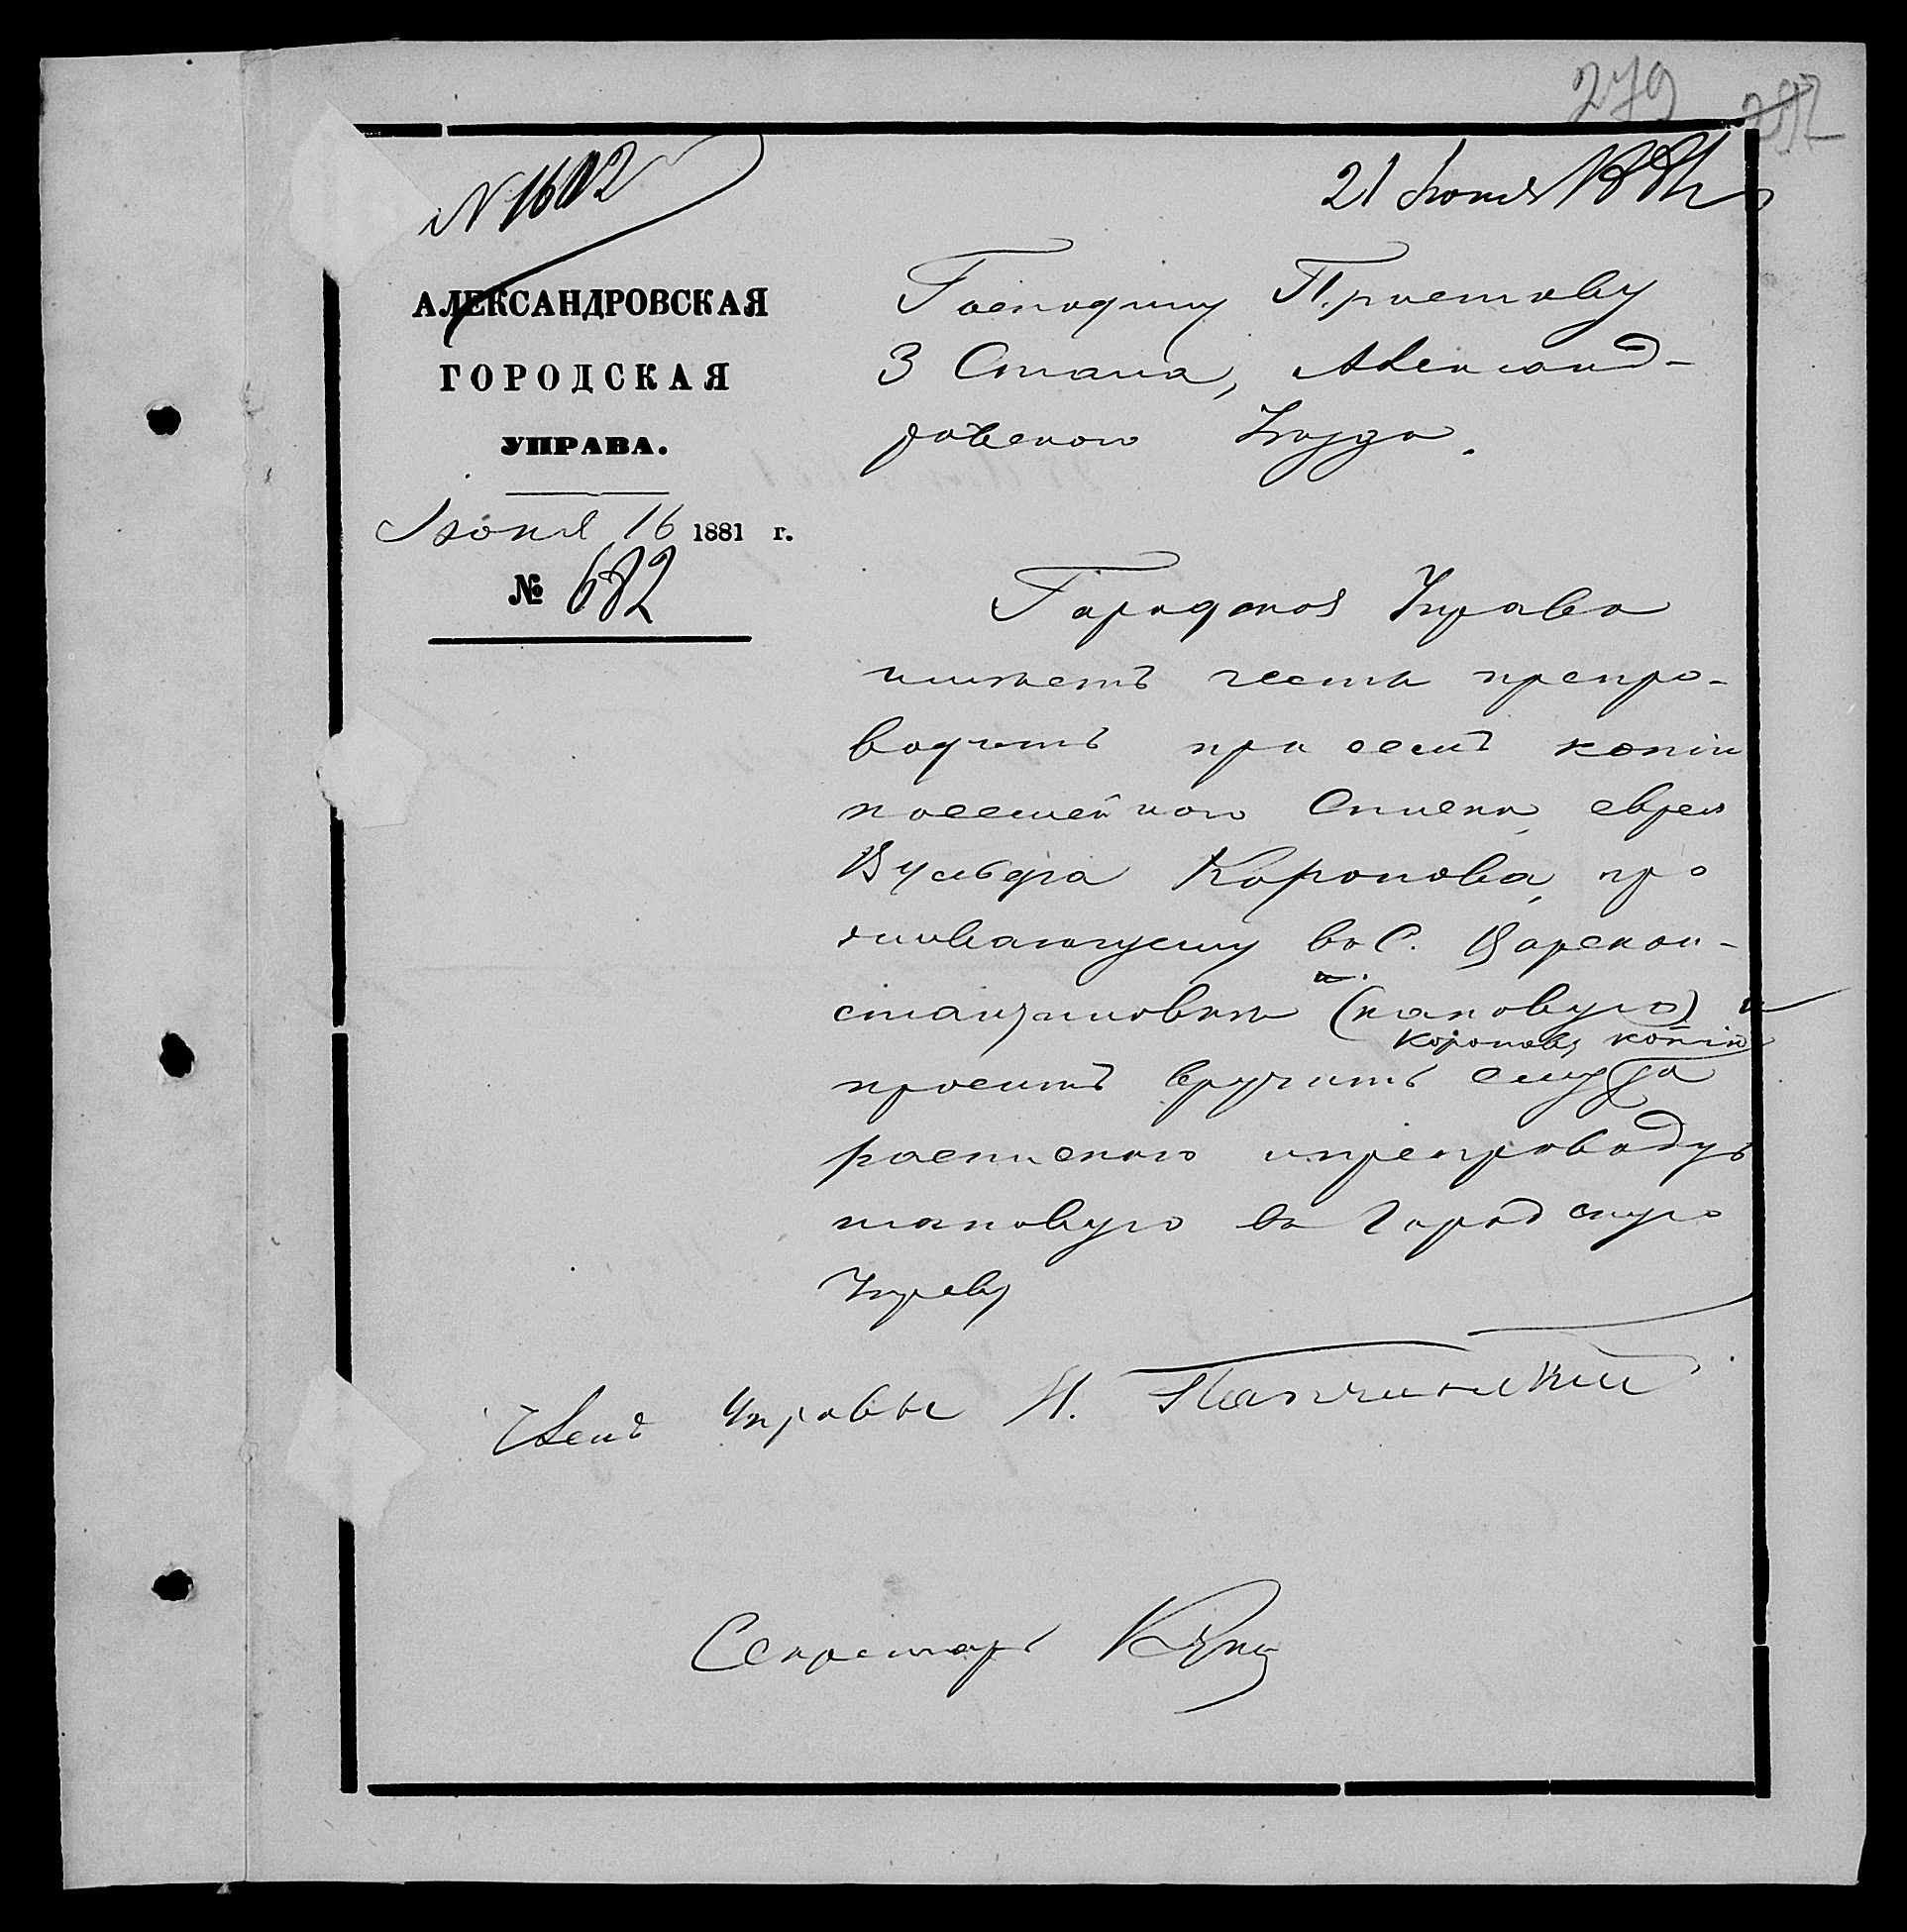 279 292
№ 1612
21 Іюня 1881 г
АЛЕКСАНДРОВСКАЯ
ГОРОДСКАЯ
УПРАВА.
Іюня 16 1881 г.
№ 682
Господину Приставу
3 Стана, Александ-
ровского Уѣзда.
Городская Управа
имѣетъ честь препро-
водить при семъ копію
посемейного Списка, еврея
Вульфа Коропова, про
живающему въ С. Царекон-
стантиновкѣ (каковую) и
Коропову копію
просить вручить ему
роспискою и препроводить
таковую въ Городскую
Управу
Членъ Управы Н.
Секретарь